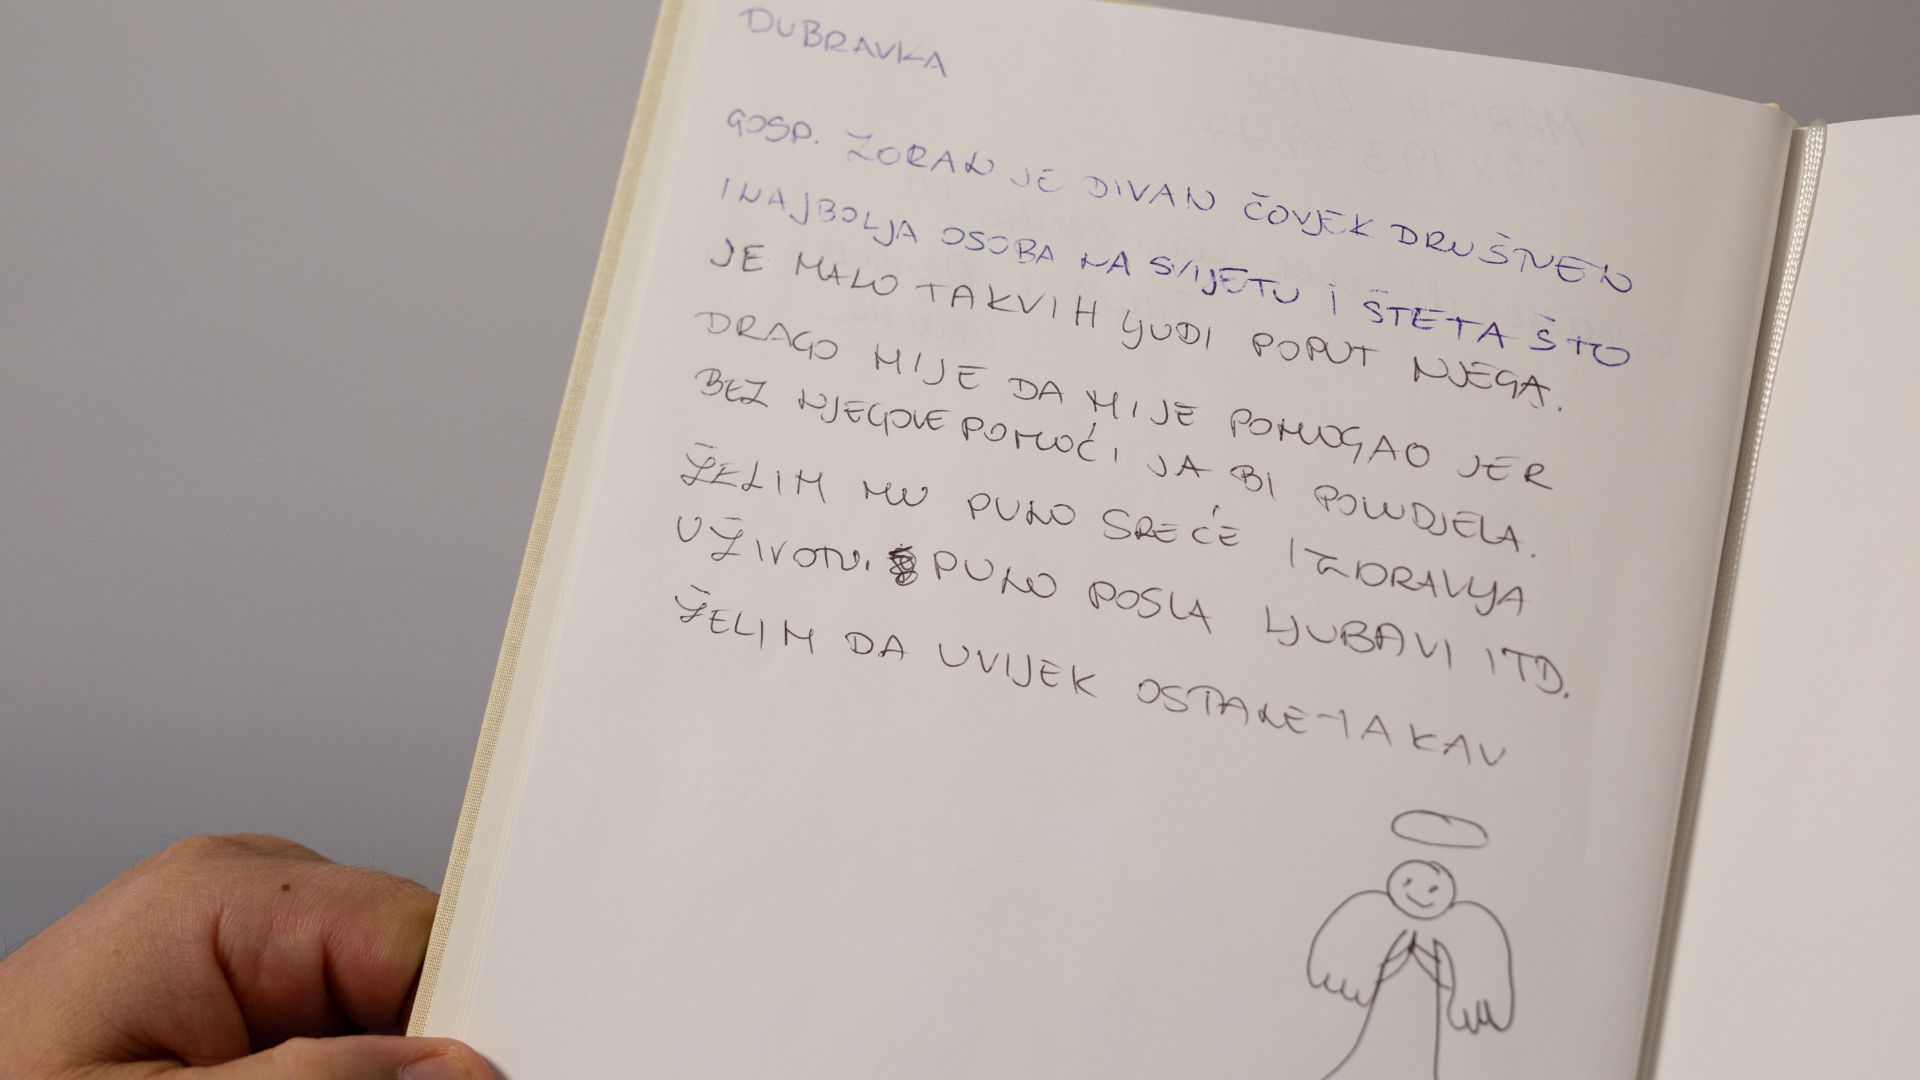 DUBRAVKA
GOSP. ZORAN JE DIVAN ČOVJEK DRUŠTVEN
I NAJBOLJA OSOBA NA SVIJETU I ŠTETA ŠTO
JE MALO TAKVIH LJUDI POPUT NJEGA.
DRAGO MI JE DA MI JE POMOGAO JER
BEZ NJEGOVE POMOĆI JA BI POLUDJELA.
ŽELIM MU PUNO SREĆE I ZDRAVLJA
U ŽIVOTU. PUNO POSLA LJUBAVI ITD.
ŽELIM DA UVIJEK OSTANE TAKAV